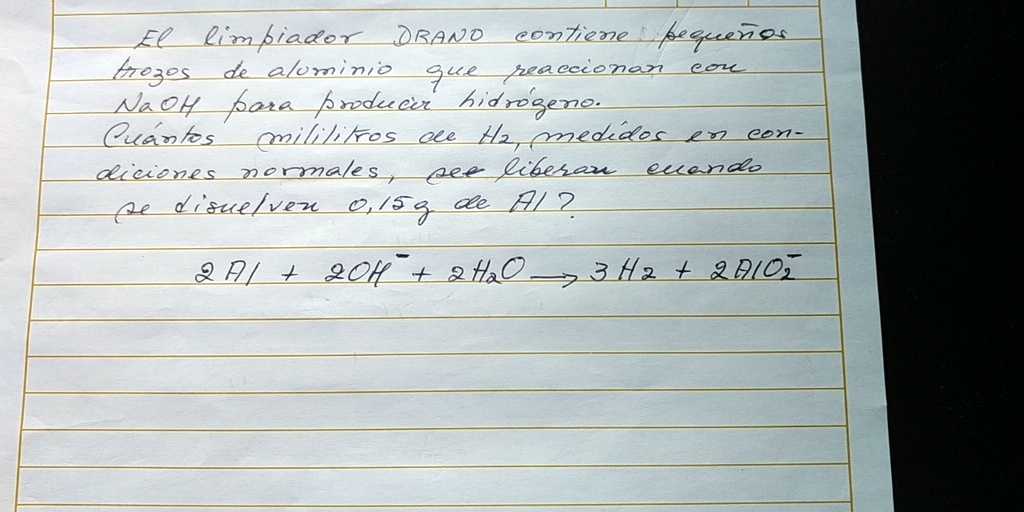 El limpiador DRANO contiene pequeños
trozos de aluminio que reaccionan con
NaOH para producir hidrógeno.
Cuántos mililitros de H₂, medidos en con-
diciones normales, se liberan cuando
se disuelven 0,15g de Al?
2Al + 2OH⁻ + 2H₂O → 3H₂ + 2AlO₂⁻